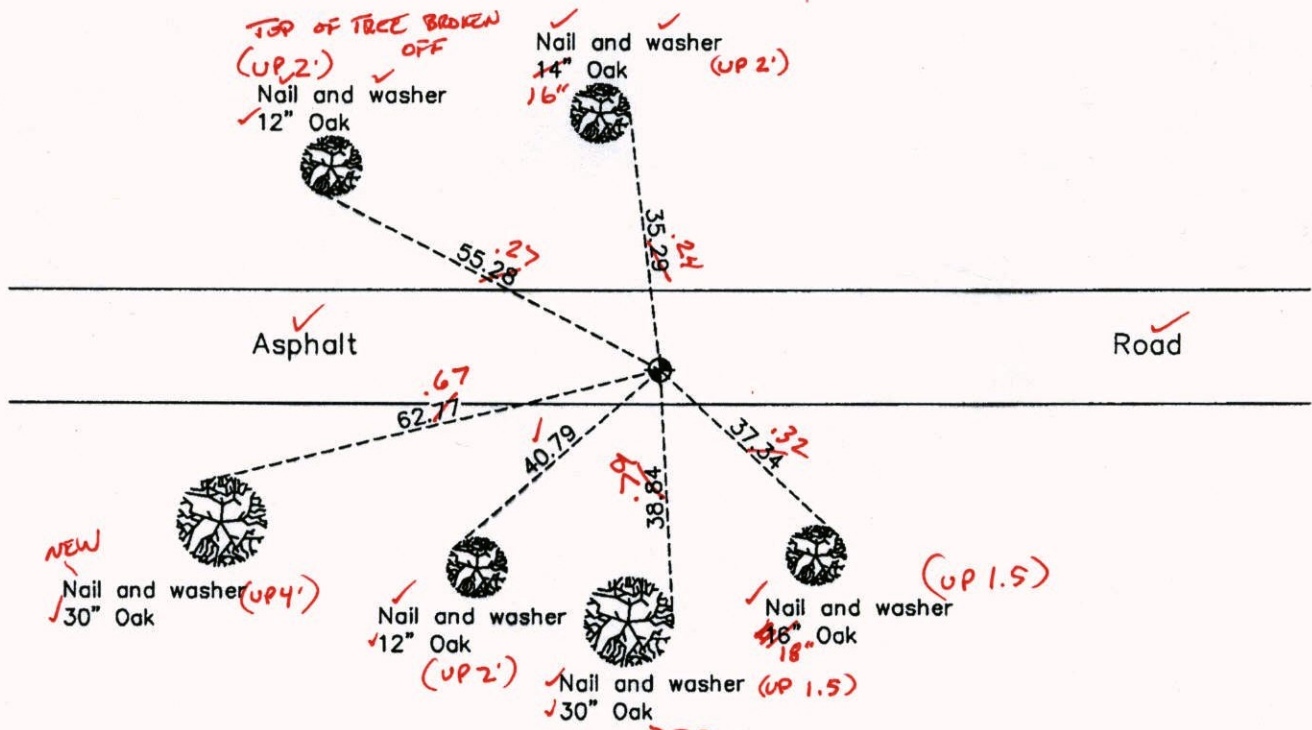 TOP OF TREE BROKEN
OFF
(UP 2')
Nail and washer
12" Oak
Nail and washer
14" Oak
16"
(UP 2')
55.28
.27
35.29
.24
Asphalt
Road
.67
62.77
40.79
38.84
37.34
.32
NEW
Nail and washer
(UP 4')
30" Oak
Nail and washer
12" Oak
(UP 2')
Nail and washer
(UP 1.5)
30" Oak
Nail and washer
16" Oak
18"
(UP 1.5)